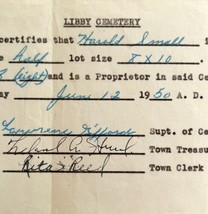 LIBBY CEMETERY
certifies that Harold Small i
e Half lot size 8 X 10.
8 (eight) and is a Proprietor in said Ce
ay June 12 1950 A. D.
Lawrence Gifford Supt. of Ce
Town Treasu
Rita S Reed Town Clerk